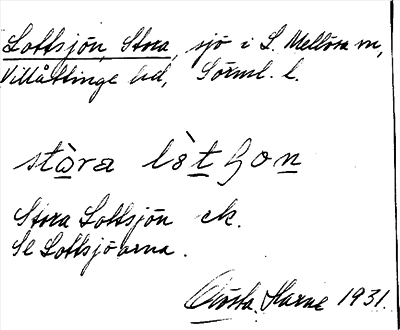 Lottsjön, Stora, sjö i L. Mellösa sn,
Villåttinge hd, Sörml. l.
stòra lòtʒon
Stora Lottsjön ek.
Se Lottsjöarna.
Gösta Harne 1931